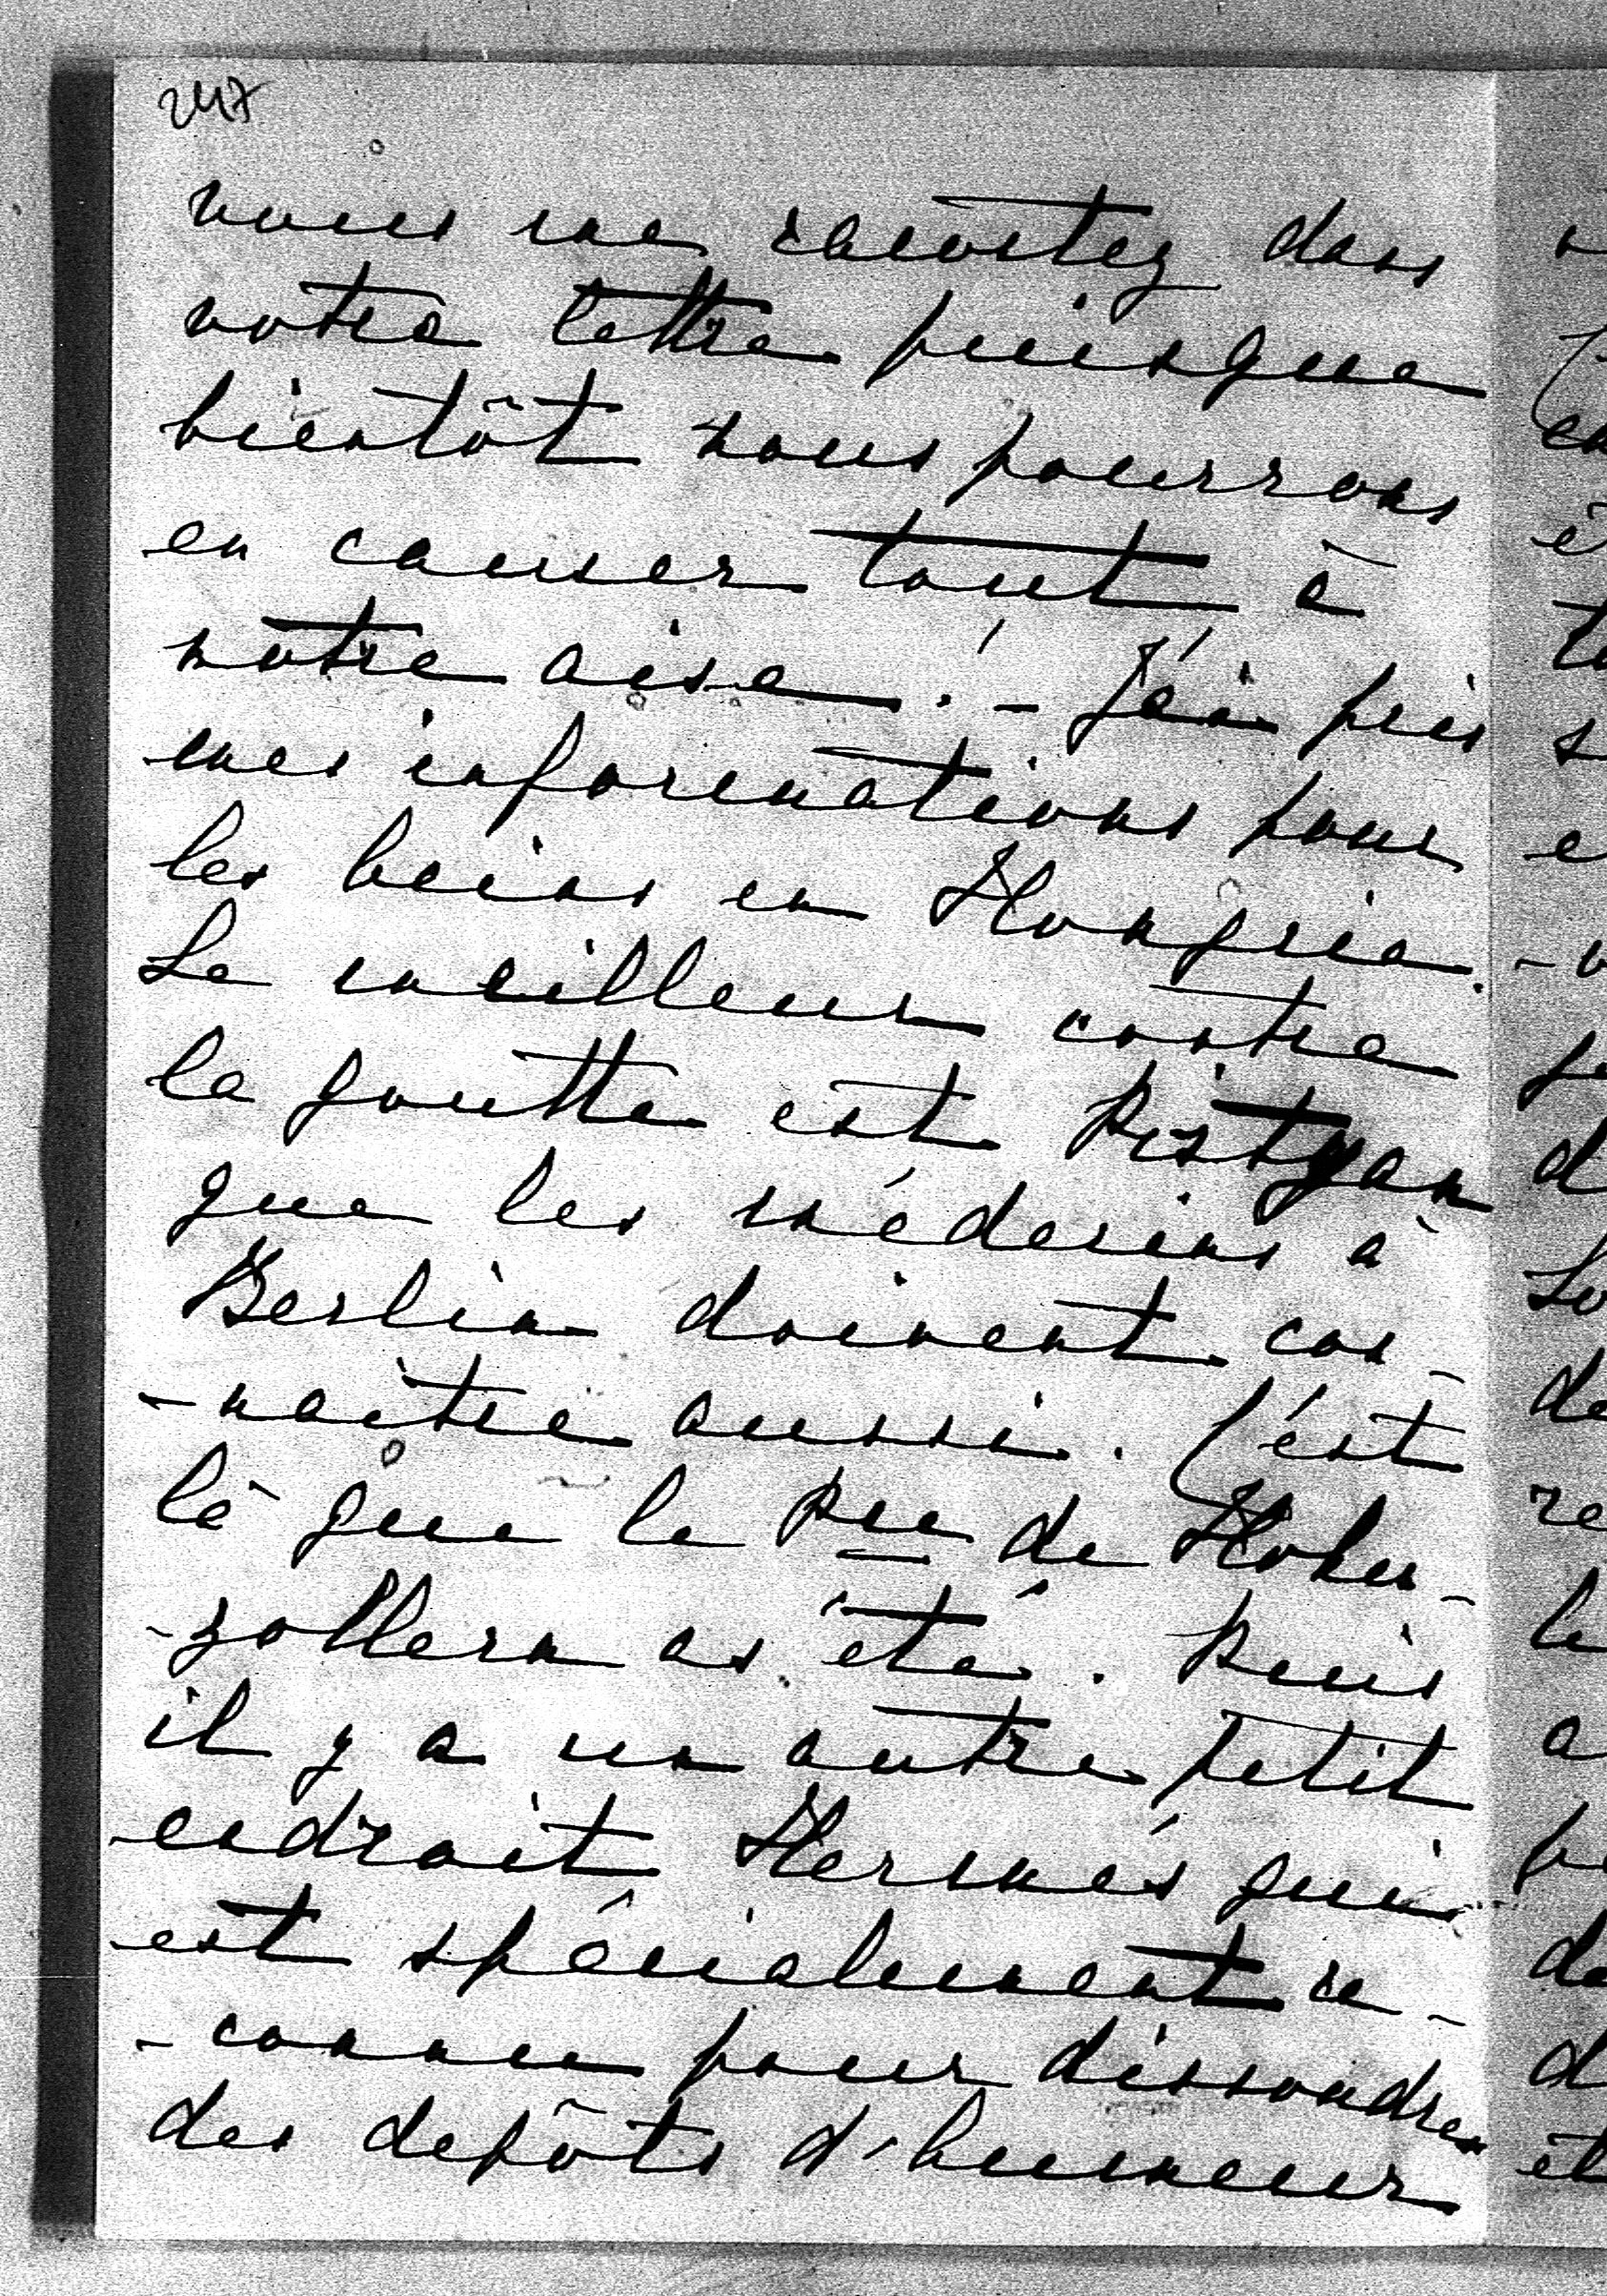 247
vous me racontez dans
votre lettre puisque
bientôt nous pourrons
en causer tout à
notre aise. - J'ai pris
mes informations pour
les bains en Hongrie.
Le meilleur contre
la goutte est Pistyan
que les médecins à
Berlin doivent con-
-naître aussi. C'est
là que le Pce de Hohen-
-zollern as été. Puis
il y a un autre petit
endroit Hermés qui
est spécialement re-
-connu pour dissoudre
des depôts d'humeur